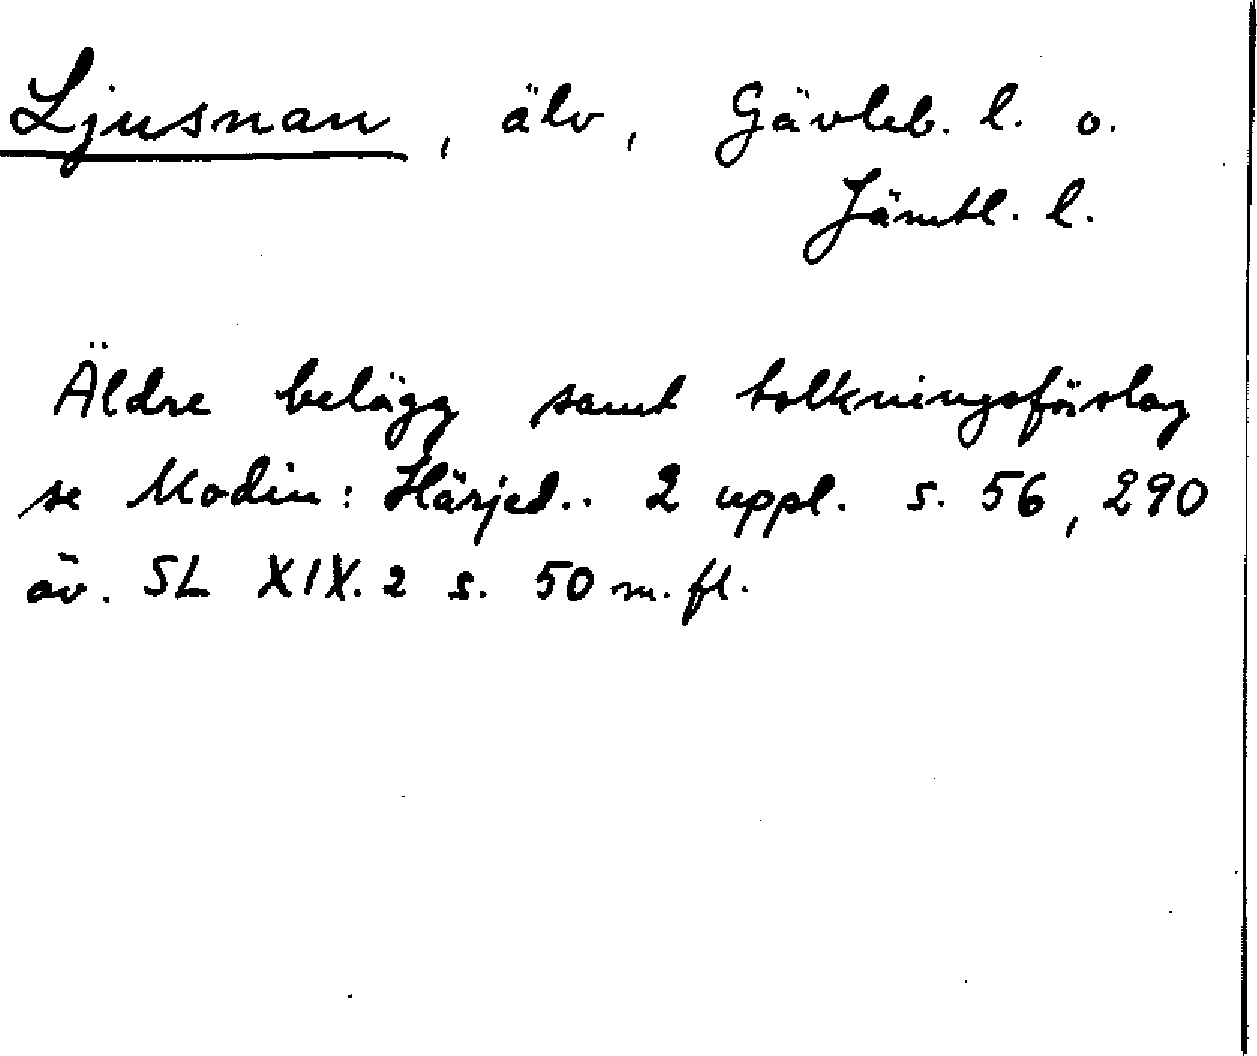 Ljusnan, älv, Gävleb. l. o.
Jämtl. l.
Äldre belägg samt tolkningsförslag
se Modin: Härjed.. 2 uppl. s. 56, 290
äv. SL XIX.2 s. 50 m. fl.